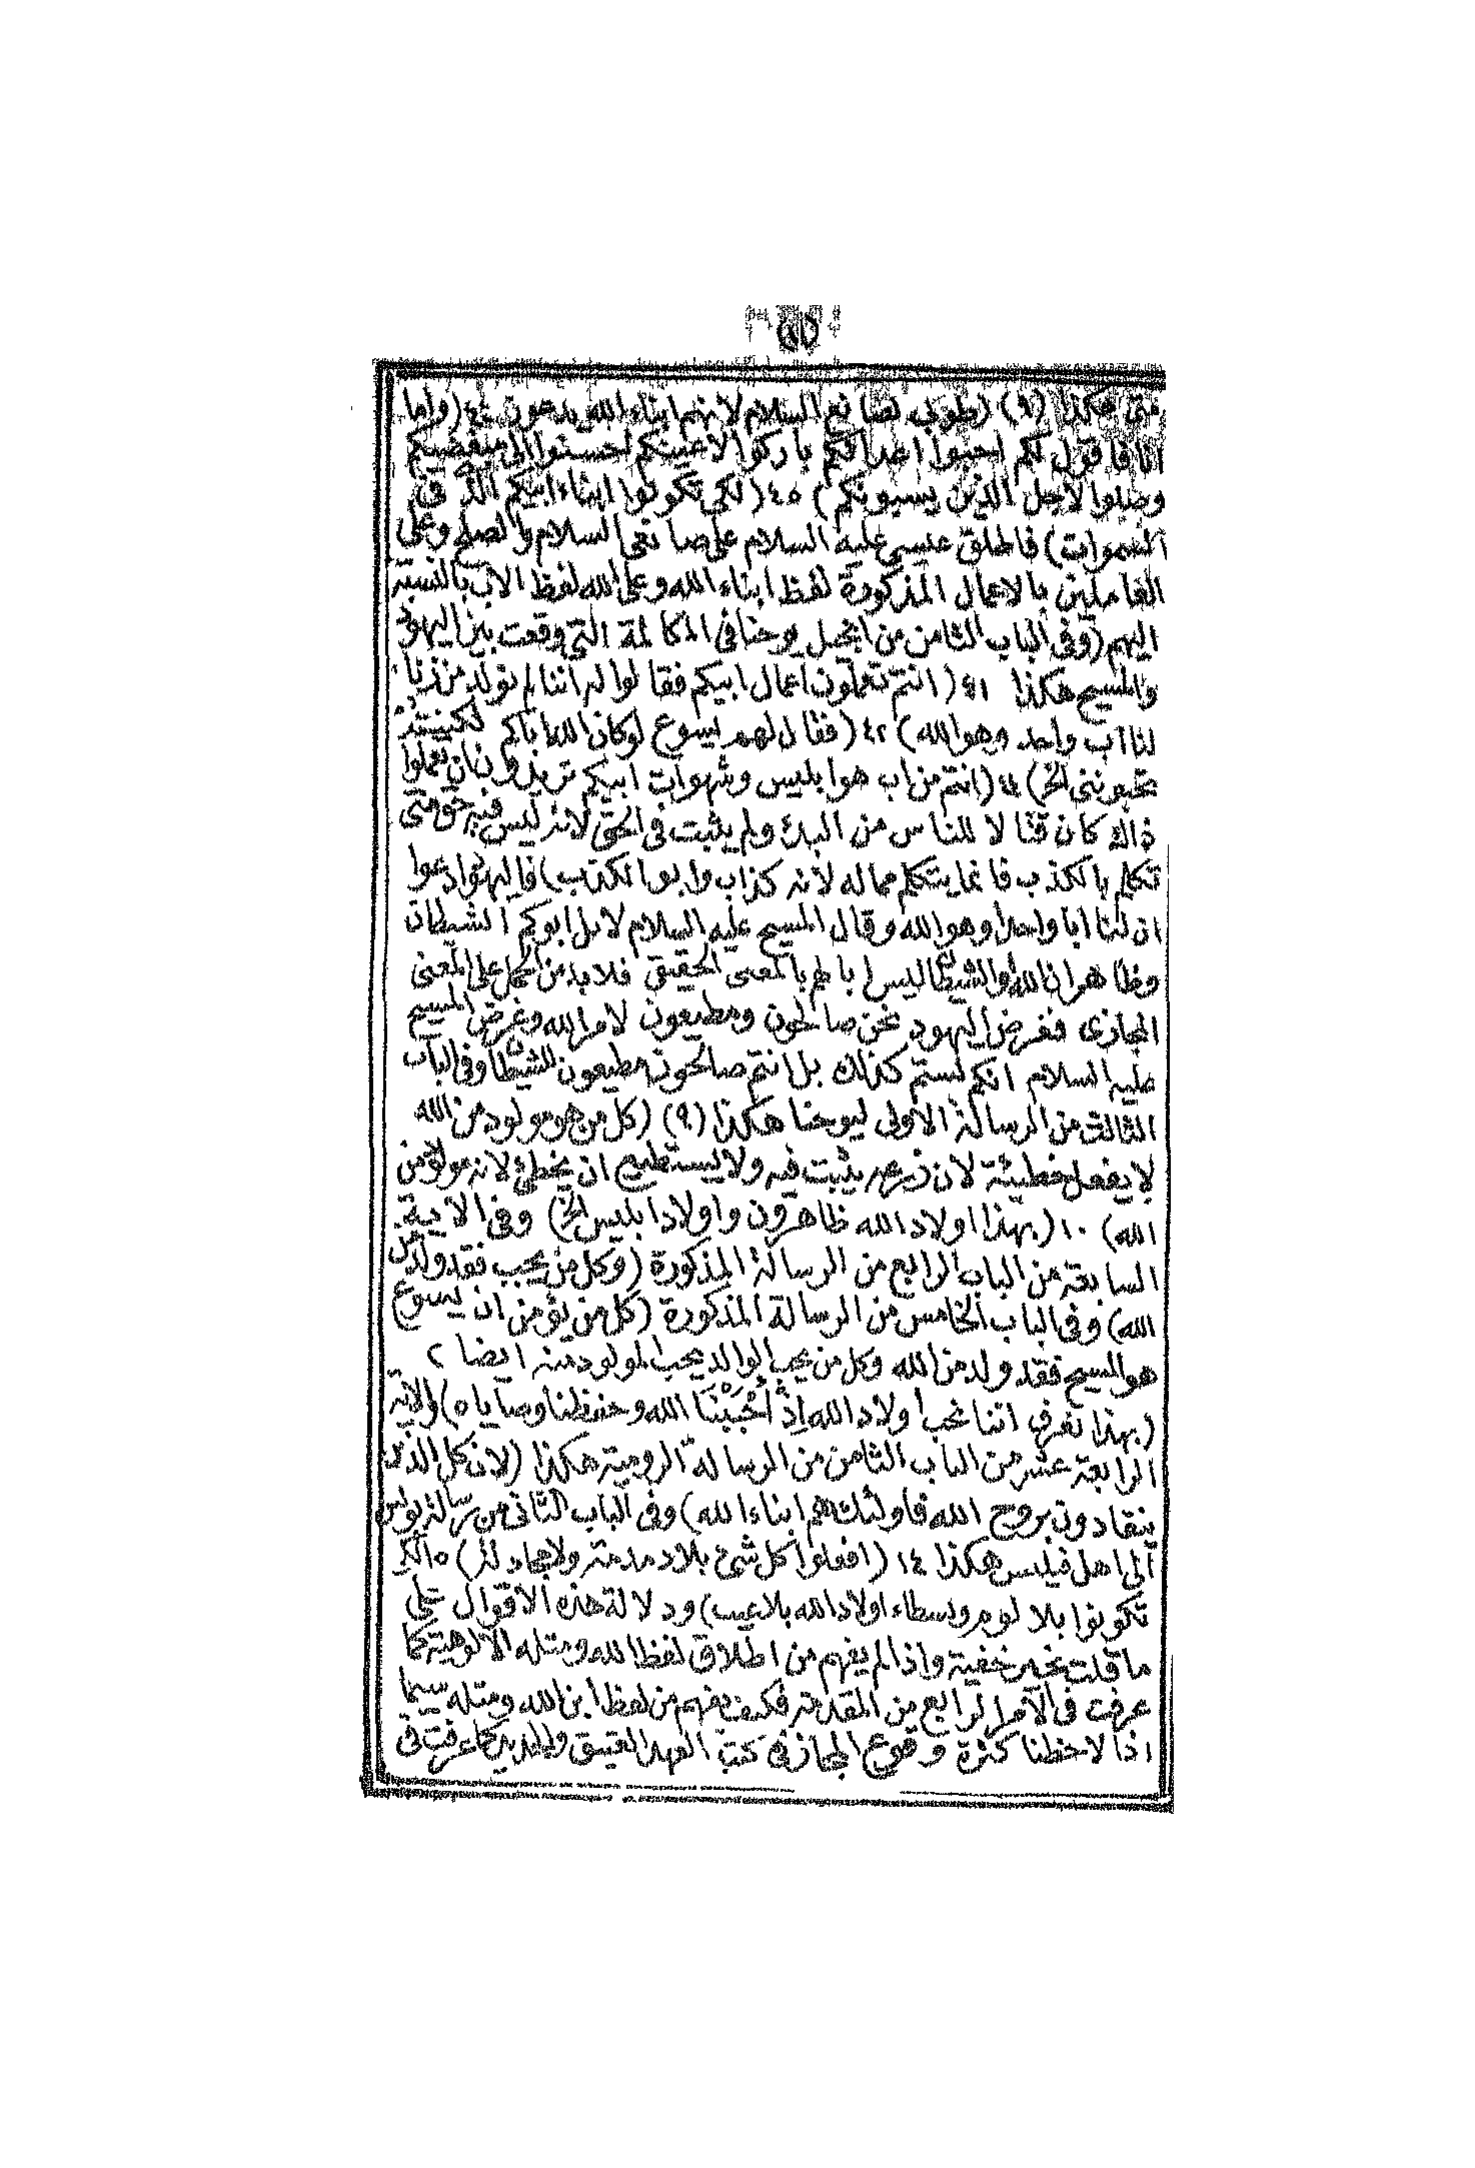 متى هكذا (٩) (طوبى لصانعى السلام لانهم ابناء الله يدعون ٤٤ (واما
انا فاقول لكم احبوا اعدائكم باركوا لاعنيكم احسنوا الى مبغضيكم
وصلوا لاجل الذين يسيونكم) ٤٥ (لكى تكونوا ابناء ابيكم الذى فى
السموات) فاطلق عيسى عليه السلام على صانعى السلام والصلح وعلى
العاملين بالاعمال المذكورة لفظ ابناء الله وعلى الله لفظ الاب بالنسبة
اليهم (وفى الباب الثامن من انجيل يوحنا فى المكالمة التى وقعت بين اليهود
والمسيح هكذا ٤١ (انتم تعملون اعمال ابيكم فقالوا له اننا لم نولد من زنا
لنا اب واحد وهو الله) ٤٢ (فقال لهم يسوع لو كان الله اباكم لكنتم
تحبوننى الخ) ٤٤ (انتم من اب هو ابليس وشهوات ابيكم تريدون ان تعملوا
ذاك كان قتالا للناس من البدء ولم يثبت فى الحق لانه ليس فيه حق متى
تكلم بالكذب فانما يتكلم مما له لانه كذاب وابو الكذب) فاليهود ادعوا
ان لنا ابا واحدا وهو الله وقال المسيح عليه السلام لا بل ابوكم الشيطان
وظاهر ان الله والشيطان ليس ابا لهم بالمعنى الحقيقى فلا بد من الحمل على المعنى
المجازى فغرض اليهود نحن صالحون ومطيعون لامر الله وغرض المسيح
عليه السلام انكم لستم كذلك بل انتم صالحون مطيعون للشيطان وفى الباب
الثالث من الرسالة الاولى ليوحنا هكذا (٩) (كل من هو مولود من الله
لا يفعل خطيئة لان زرعه يثبت فيه ولا يستطيع ان يخطئ لانه مولود من
الله) ١٠ (بهذا اولاد الله ظاهرون واولاد ابليس الخ) وفى الاية
السابعة من الباب الرابع من الرسالة المذكورة (وكل من يحب فقد ولد من
الله) وفى الباب الخامس من الرسالة المذكورة (كل من يؤمن ان يسوع
هو المسيح فقد ولد من الله وكل من يحب الوالد يحب المولود منه ايضا ٢
(بهذا نعرف اننا نحب اولاد الله اِذْ اَحْبَبْنَا الله وحفظنا وصاياه) والاية
الرابعة عشر من الباب الثامن من الرسالة الرومية هكذا (لان كل الذين
ينقادون بروح الله فاولئك هم ابناء الله) وفى الباب الثانى من رسالة بولس
الى اهل فيلبس هكذا ١٤ (افعلوا كل شئ بلا دمدمة ولا مجادلة) ١٥ لكى
تكونوا بلا لوم وبسطاء اولاد الله بلا عيب) ودلالة هذه الاقوال على
ما قلت غير خفية واذا لم يفهم من اطلاق لفظ الله ومثله الالوهية كما
عرفت فى الامر الرابع من المقدمة فكيف يفهم من لفظ ابن الله ومثله سيما
اذا لاحظنا كثرة وقوع المجاز فى كتب العهد العتيق والجديد كما عرفت فى